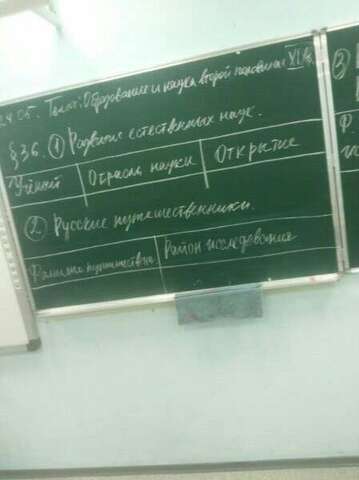 24.05. Тема: Образование и наука второй половине XIX в.
§ 36. ① Развитие естественных наук.
Учёный Отрасль науки Открытие
② Русские путешественники.
Фамилия путешествен. Район исследования
②